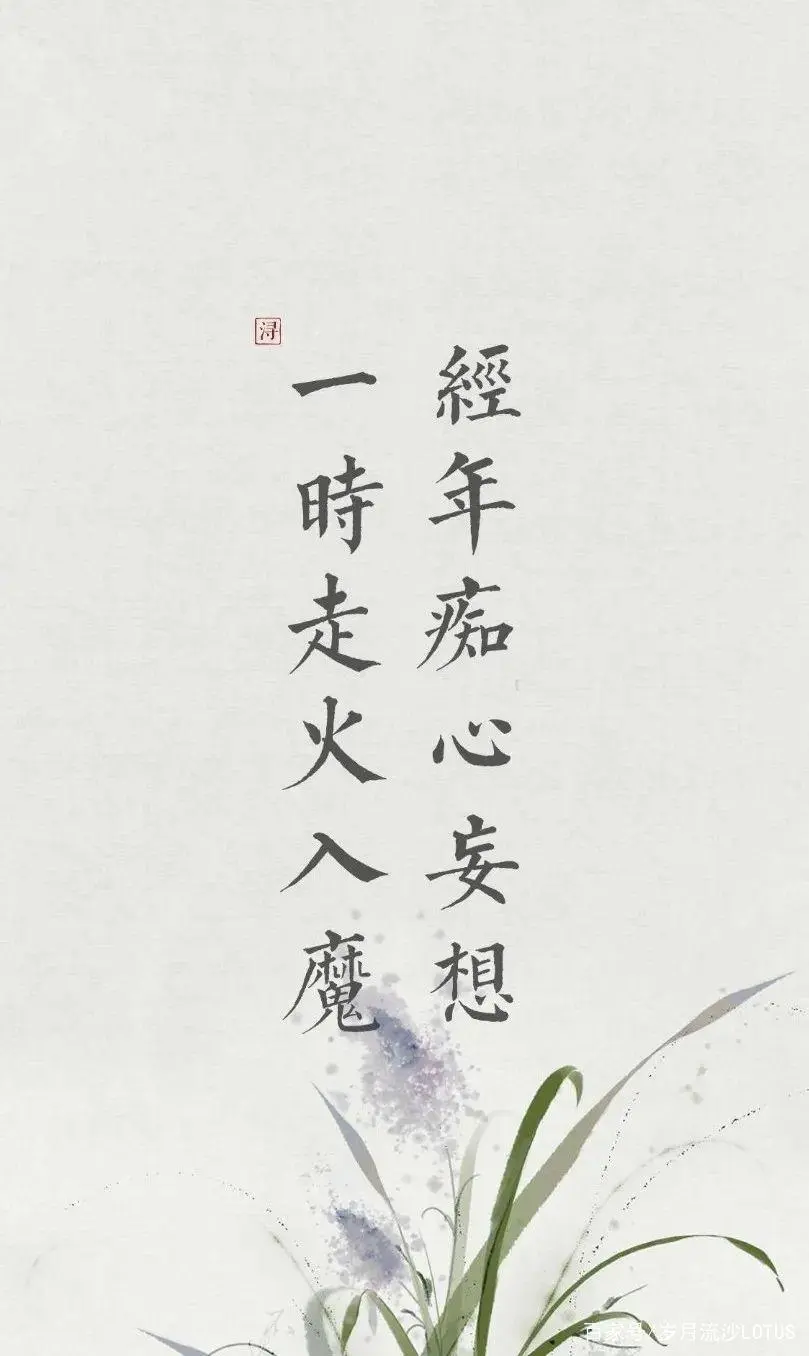 經年痴心妄想
一時走火入魔
浔
百家号/岁月流沙LOTUS